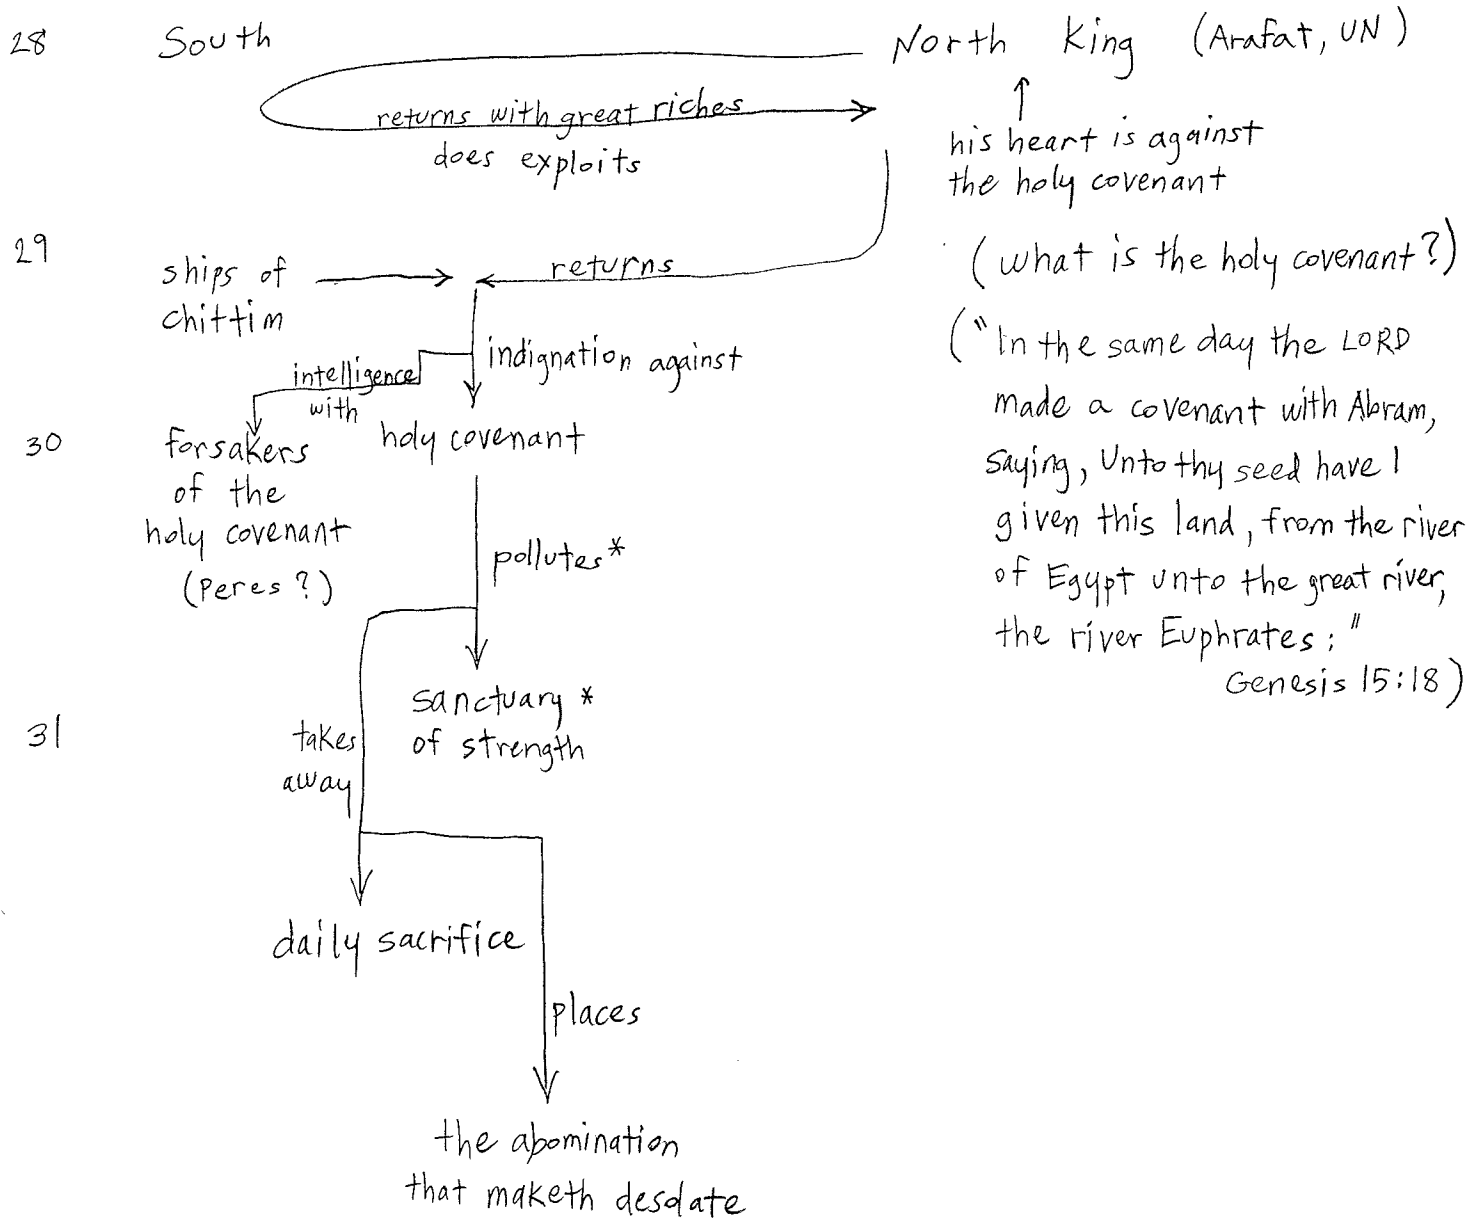 28 South North King (Arafat, UN)
returns with great riches
does exploits
his heart is against
the holy covenant
29
(what is the holy covenant?)
ships of
chittim
returns
("In the same day the LORD
made a covenant with Abram,
saying, Unto thy seed have I
given this land, from the river
of Egypt unto the great river,
the river Euphrates:"
Genesis 15:18)
indignation against
intelligence
with
30
forsakers
of the
holy covenant
(Peres?)
holy covenant
pollutes*
sanctuary *
of strength
31
takes
away
daily sacrifice
places
the abomination
that maketh desolate